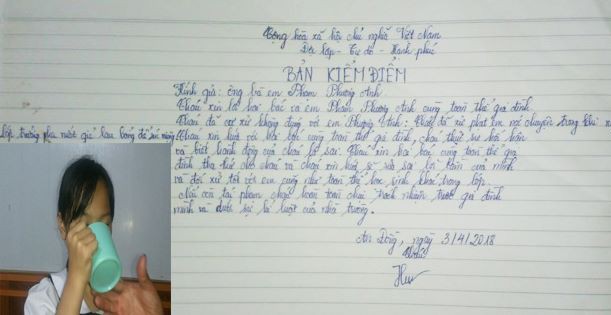 Cộng hòa xã hội chủ nghĩa Việt Nam
Độc lập - Tự do - Hạnh phúc
BẢN KIỂM ĐIỂM
Kính gửi: ông bà em Phạm Phương Anh
Cháu xin lỗi hai bác và em Phạm Phương Anh cùng toàn thể gia đình.
Cháu đã cư xử không đúng với em Phương Anh: Cháu đã xử phạt em nói chuyện trong khi
lớp trưởng pha nước giẻ lau bảng để súc miệng
Cháu xin hứa với hai bác cùng toàn thể gia đình, cháu thật sự hối hận
và biết hành động của cháu là sai. Cháu xin hai bác cùng toàn thể gia
đình tha thứ cho cháu và cháu xin hứa sẽ sửa sai lỗi lầm của mình
và đối xử tốt với em cũng như toàn thể học sinh khác trong lớp.
Nếu còn tái phạm cháu hoàn toàn chịu trách nhiệm trước gia đình
mình và dưới sự kỉ luật của nhà trường.
An Đồng, ngày 3/4/2018